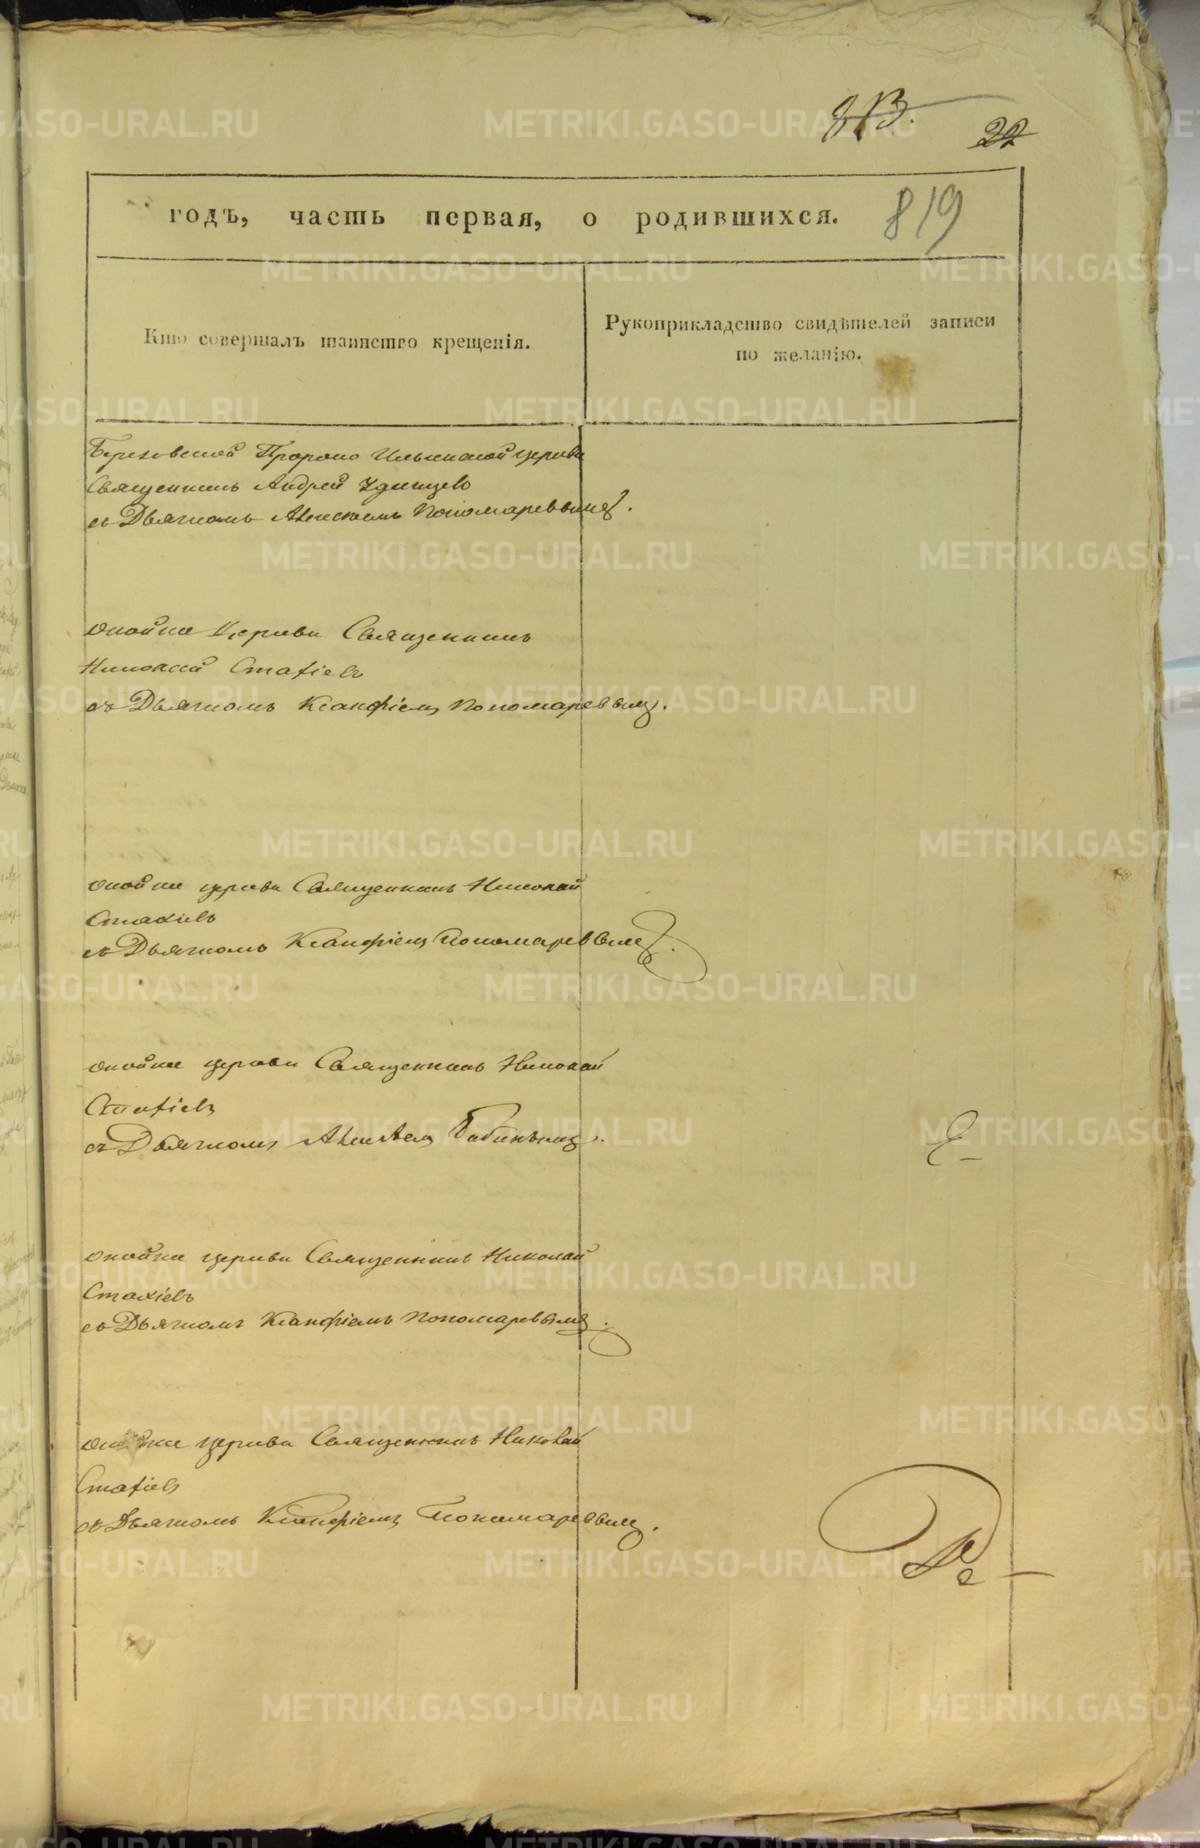 813.
22
819
годъ, часть первая, о родившихся.
Кто совершалъ таинство крещенія.
Рукоприкладство свидѣтелей записи
по желанію.
Березовской Пророко Ильинской церкви
Священникъ Андрей Удинцевъ
съ Дьячкомъ Пономаревымъ.
оной же Церкви Священникъ
Николай Стахіевъ
съ Дьячкомъ Ксанфіемъ Пономаревымъ.
оной же церкви Священникъ Николай
Стахіевъ
съ Дьячкомъ Ксанфіемъ Пономаревымъ.
оной же церкви Священникъ Николай
Стахіевъ
съ Дьячкомъ Бабинымъ.
оной же церкви Священникъ Николай
Стахіевъ
съ Дьячкомъ Ксанфіемъ Пономаревымъ.
оной же церкви Священникъ Николай
Стахіевъ
съ Дьячкомъ Ксанфіемъ Пономаревымъ.
METRIKI.GASO-URAL.RU